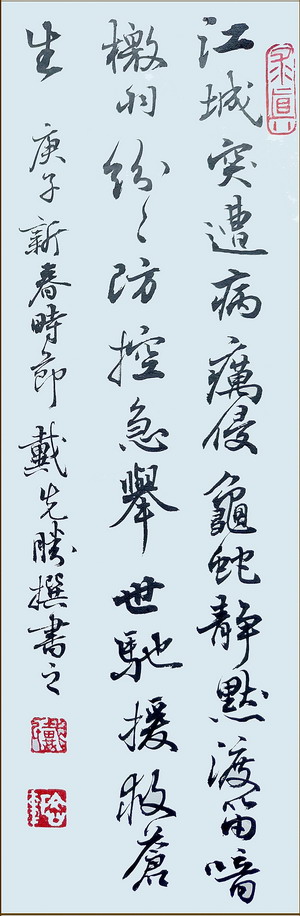 江城突遭病癘侵龜蛇靜默渡笛喑
檄羽紛紛防控急舉世馳援救蒼
生
庚子新春時節戴先勝撰書之